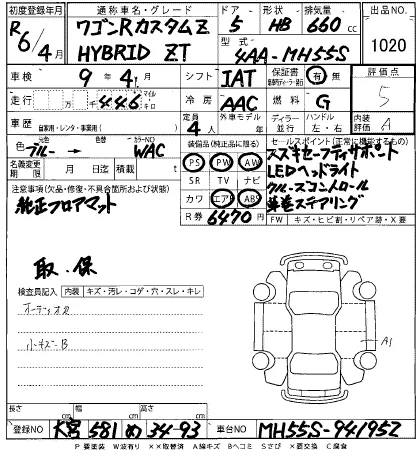 初度登録年月 通称車名・グレード ドア 形状 排気量 出品NO.
R6/4月 ワゴンRカスタムZ HYBRID ZT 5 HB 660cc 1020
型式 4AA-MH55S
車検 9年4月 シフト IAT 保証書 有・無 評価点 5
走行 万 千 446 マイル キロ 冷房 AAC 燃料 G
車歴 自家用・レンタ・事業用( ) 定員 4人 外車モデル 年 ディーラー 並行 ハンドル 左・右 内装評価 A
色 元色 ブルー → 色替 カラーNO WAC
名義変更期限 月 日迄 積載 t
装備品(純正品に限る)
PS PW AW
SR TV ナビ
カワ エアB ABS
R券 6470円
セールスポイント(正常に機能するもの)
スズキセーフティサポート
LEDヘッドライト
クルーズコントロール
革巻ステアリング
FW キズ・ヒビ割・リペア跡・X要
注意事項(欠品・修復・不具合箇所および状態)
純正フロアマット
取・保
検査員記入 内装 キズ・汚レ・コゲ・穴・スレ・キレ
オーディオレス
小キズB
A1
長さ cm 幅 cm 高さ cm
登録NO 大宮 581 め 34-93 車台NO MH55S-941952
P 要塗装 W波有り ××取替済 A線キズ Bヘコミ Sさび ×要交換 C腐食